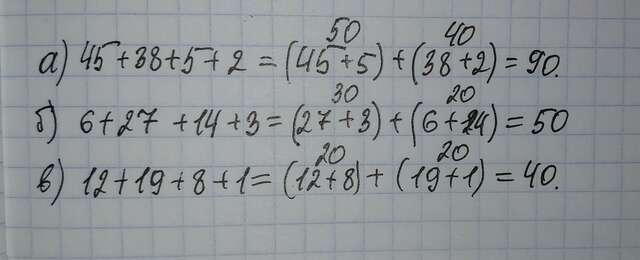 50 40
а) 45+38+5+2 = (45+5)+(38+2) = 90.
30 20
б) 6+27+14+3 = (27+3)+(6+14) = 50
20 20
в) 12+19+8+1 = (12+8)+(19+1) = 40.